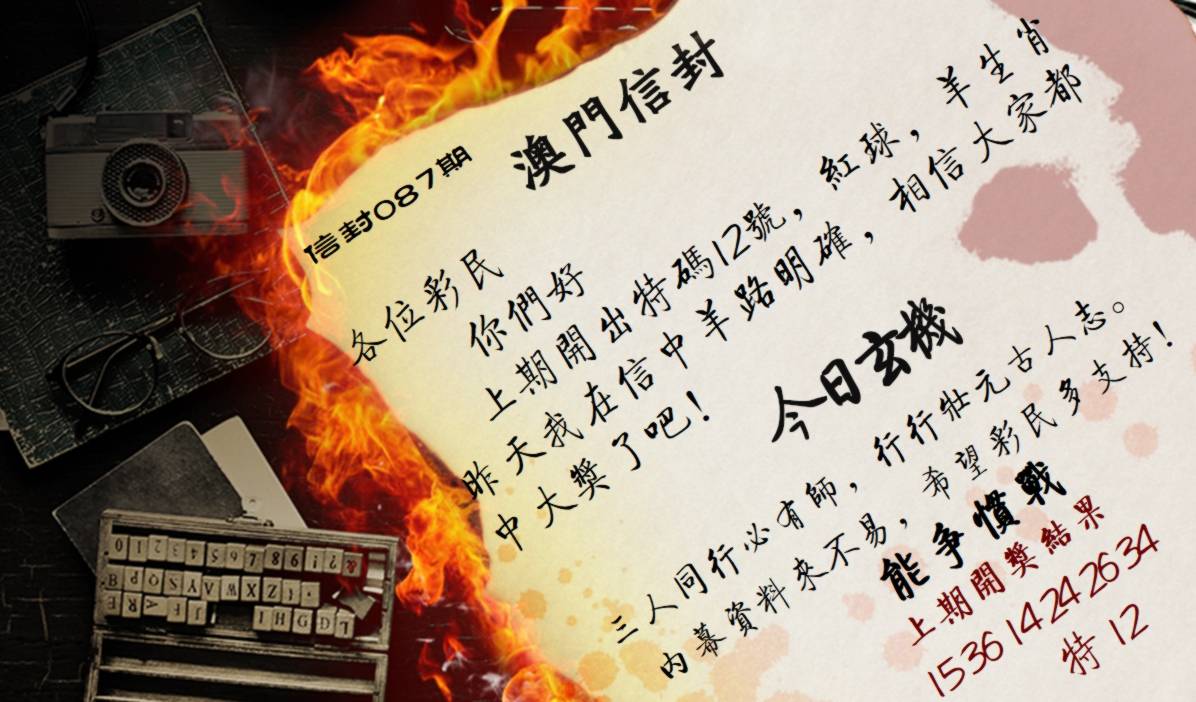 澳門信封
信封087期
各位彩民
你們好
上期開出特碼12號，紅球，羊生肖
昨天我在信中羊路明確，相信大家都
中大獎了吧！
今日玄機
三人同行必有師，行行壯元古人志。
内幕資料來不易，希望彩民多支持！
能爭慣戰
上期開獎結果
153614242634
特12